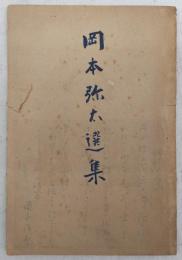 岡本弥太選集